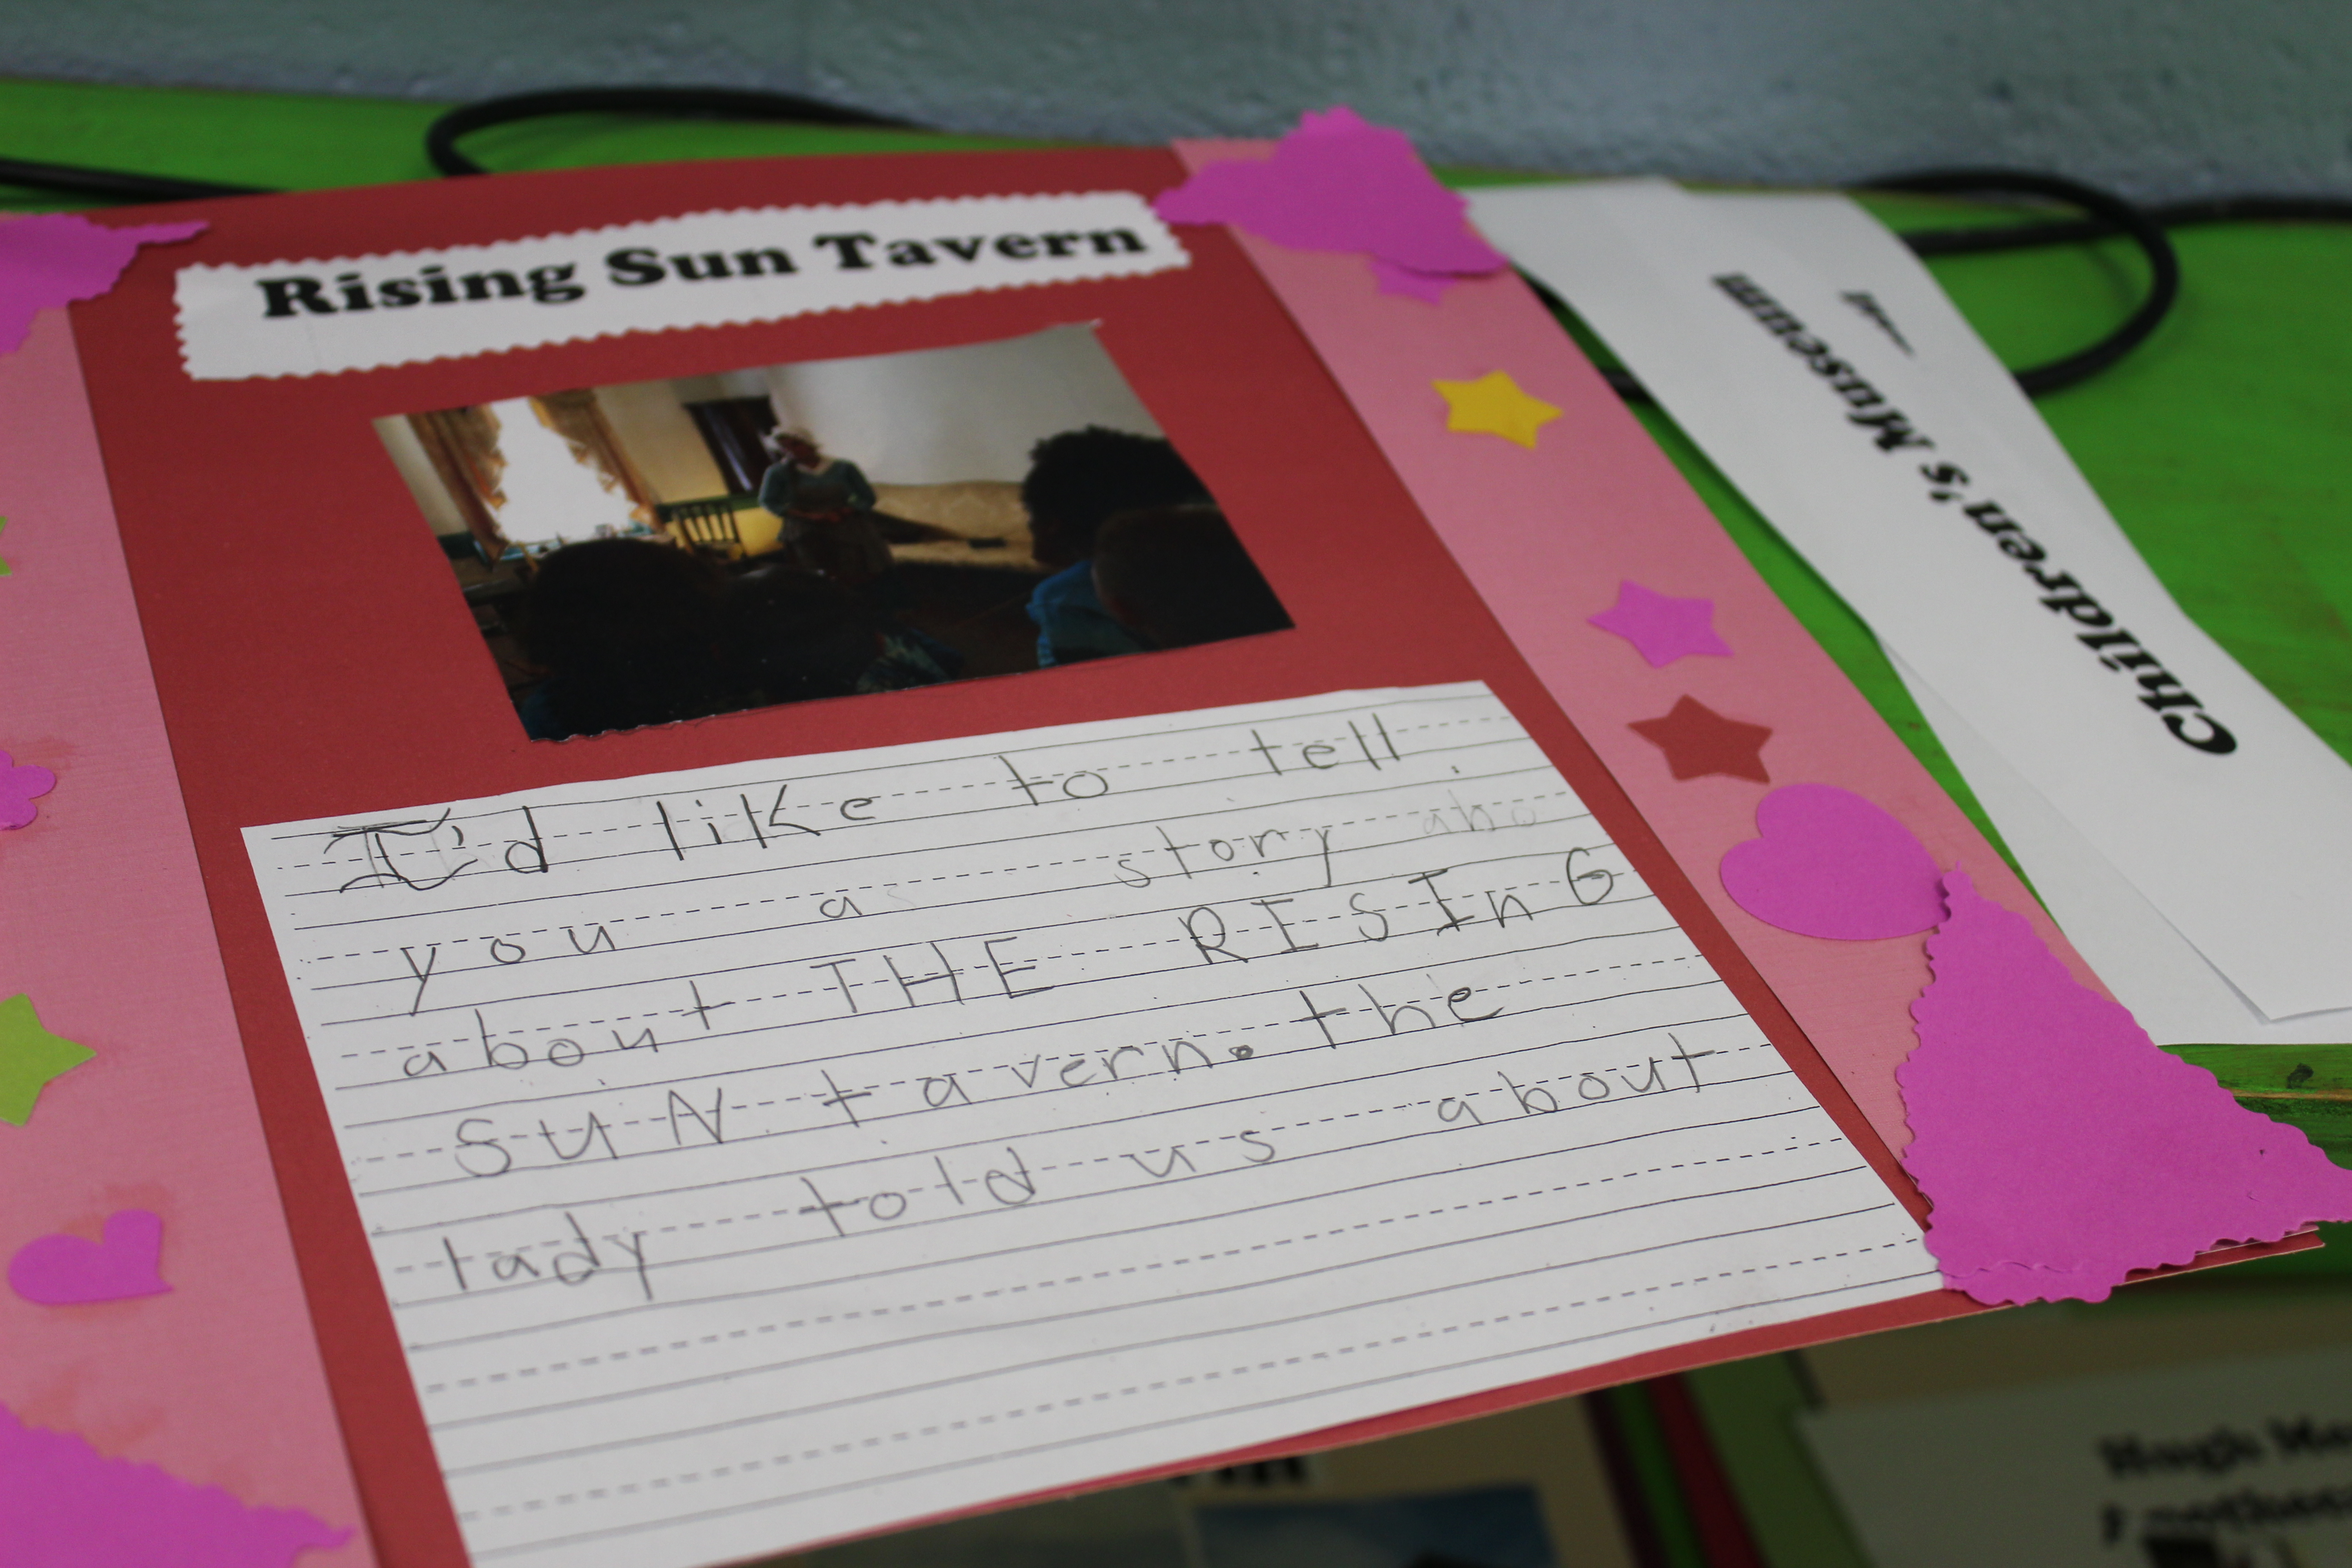 Rising Sun Tavern
I'd like to tell
you a story abo
about THE RISInG
SUN tavern. the
lady told us about
Children's Museum